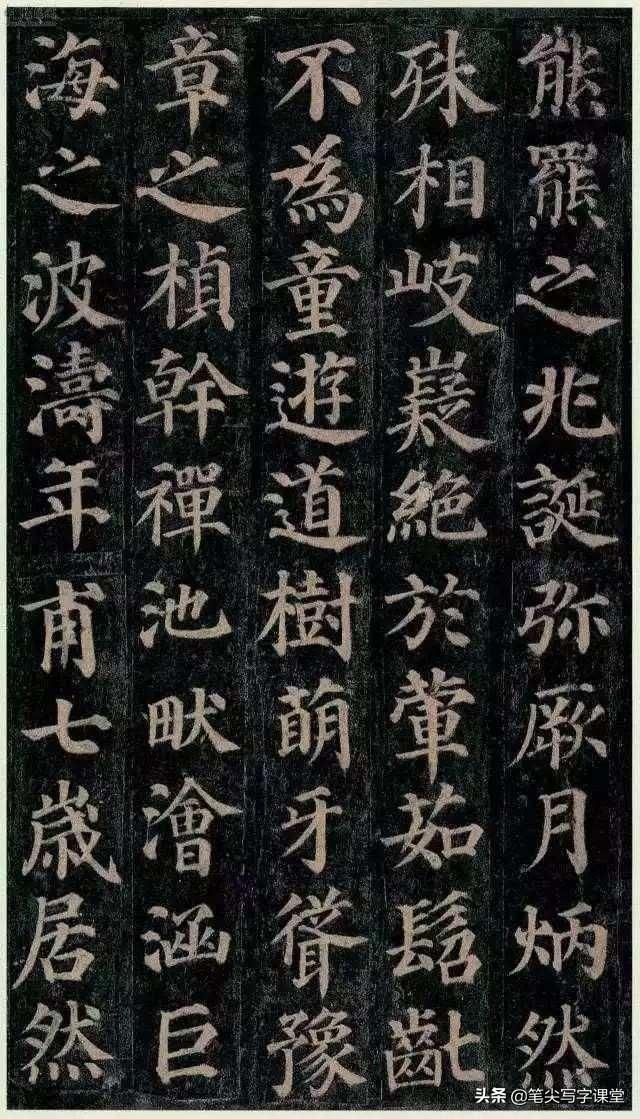 熊羆之兆誕弥厥月炳然
殊相岐嶷絶於葷茹髫齔
不為童遊道樹萌牙聳豫
章之楨幹禪池畎澮涵巨
海之波濤年甫七歲居然
头条 @笔尖写字课堂